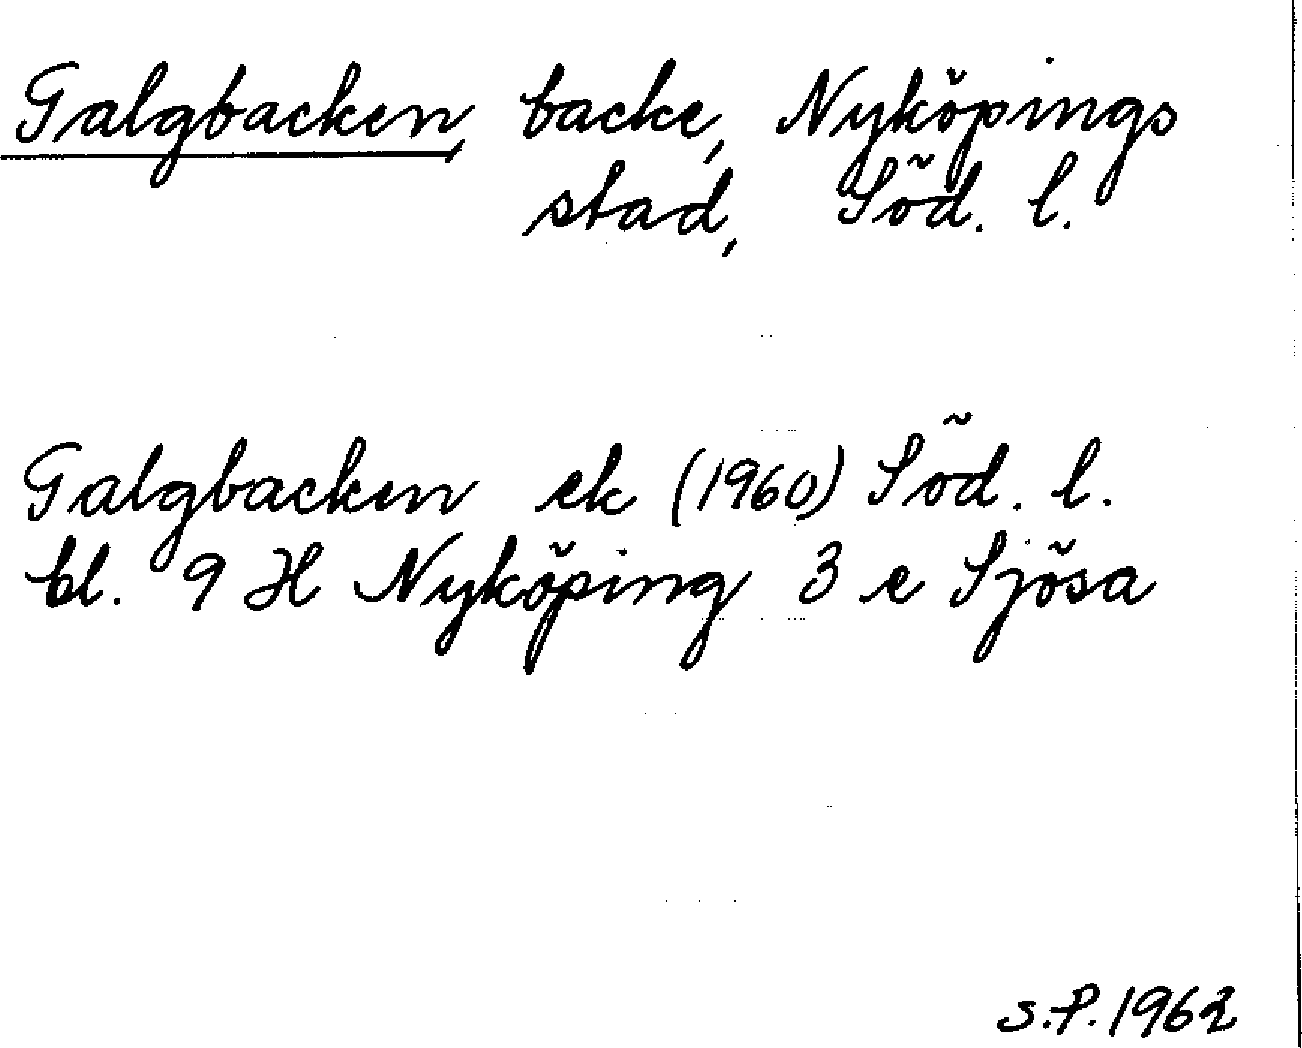 Galgbacken, backe, Nyköpings
stad, Söd. l.
Galgbacken ek (1960) Söd. l.
bl. 9 H Nyköping 3 e Sjösa
S.P. 1962